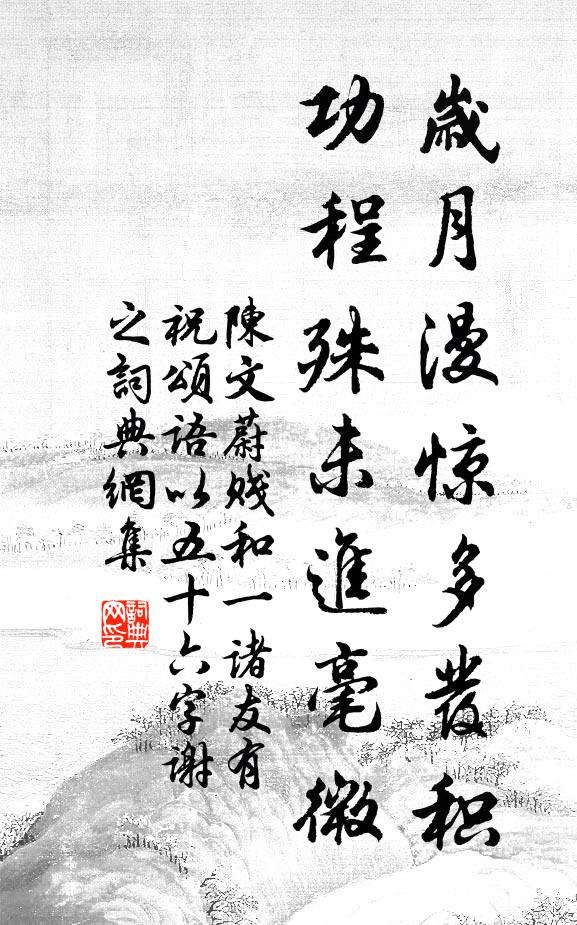 歲月漫惊多發积
功程殊未進毫微
陳文蔚贱和一诸友有
祝頌語以五十六字謝
之詞典網集
詞典
网印